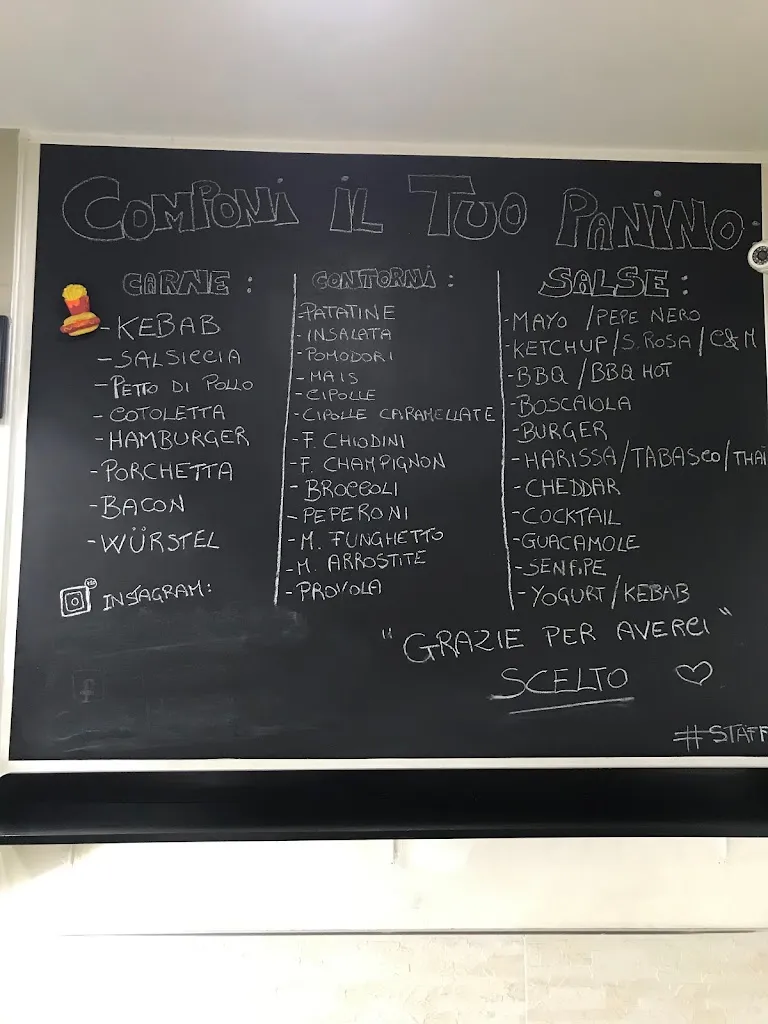 COMPONI IL TUO PANINO
CARNE:
- KEBAB
- SALSICCIA
- PETTO DI POLLO
- COTOLETTA
- HAMBURGER
- PORCHETTA
- BACON
- WÜRSTEL
INSTAGRAM:
f
CONTORNI:
- PATATINE
- INSALATA
- POMODORI
- MAIS
- CIPOLLE
- CIPOLLE CARAMELLATE
- F. CHIODINI
- F. CHAMPIGNON
- BROCCOLI
- PEPERONI
- M. FUNGHETTO
- M. ARROSTITE
- PROVOLA
SALSE:
- MAYO / PEPE NERO
- KETCHUP / S. ROSA / C&M
- BBQ / BBQ HOT
- BOSCAIOLA
- BURGER
- HARISSA / TABASCO / THAI
- CHEDDAR
- COCKTAIL
- GUACAMOLE
- SENAPE
- YOGURT / KEBAB
"GRAZIE PER AVERCI"
SCELTO
#STAFF